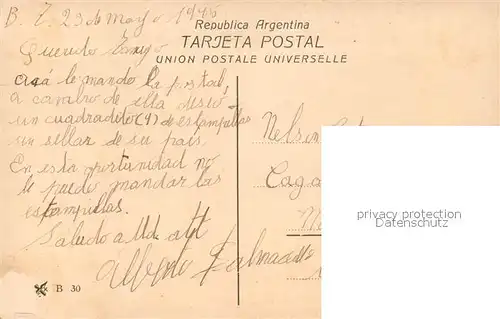 B. 23 de Mayo 1946
Republica Argentina
TARJETA POSTAL
UNION POSTALE UNIVERSELLE
Querido
acá le mando la postal,
a de ella deseo
un cuadradito (4) de estampillas
sin sellar de su país.
En esta oportunidad no
le puedo mandar las
estampillas.
Saludo a Ud. att
Alberto
Nelson
privacy protection
Datenschutz
B 30